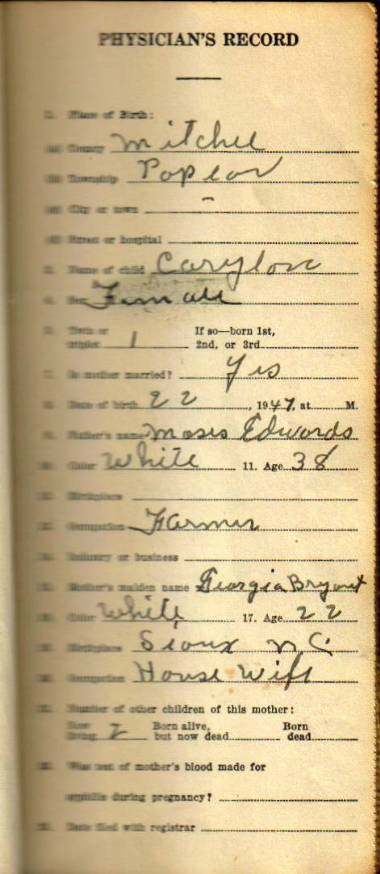 PHYSICIAN'S RECORD
Place of Birth:
County Mitchel
Township Poplar
City or town -
Street or hospital
Name of child Carylon
Sex Fimale
Twin or If so—born 1st,
triplet 1 2nd, or 3rd
Is mother married? Yes
Date of birth 22, 1947, at M.
Father's name Moses Edwards
Color White 11. Age 38
Birthplace
Occupation Farmer
Industry or business
Mother's maiden name Georgia Bryant
Color White 17. Age 22
Birthplace Sioux N C.
Occupation House Wife
Number of other children of this mother:
Now Born alive, Born
living 2 but now dead dead
Was test of mother's blood made for
syphilis during pregnancy?
Date filed with registrar